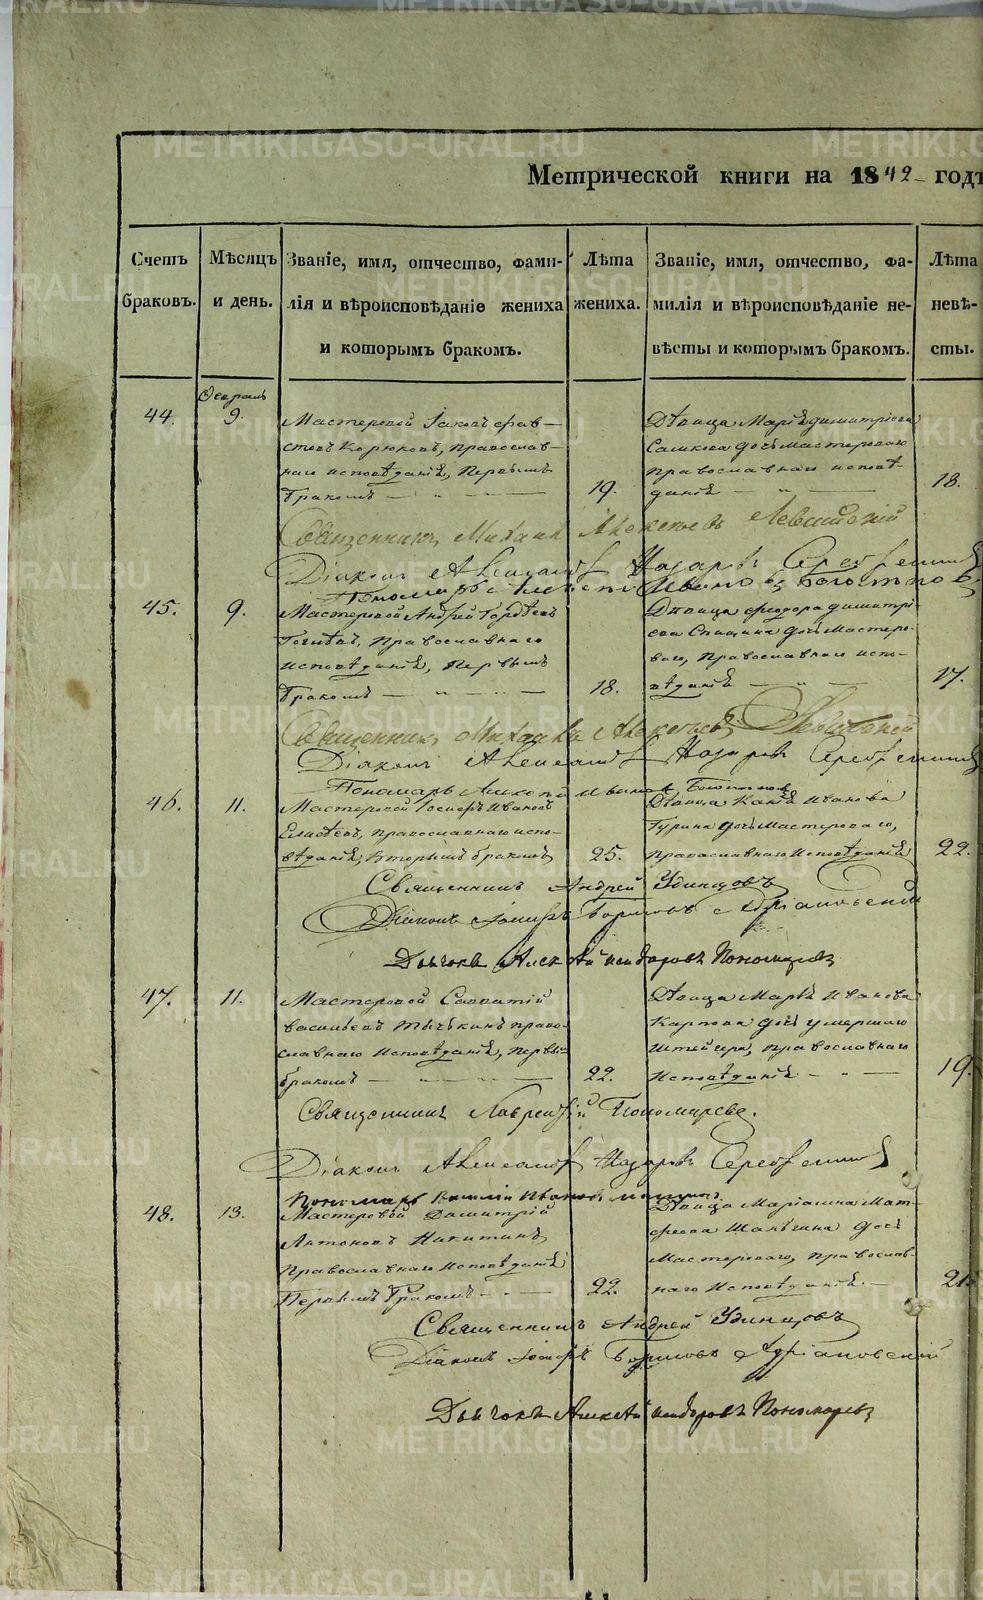 METRIKI.GASO-URAL.RU
Метрической книги на 1842 годъ
Счетъ браковъ.
Мѣсяцъ и день.
Званіе, имя, отчество, фами-
лія и вѣроисповѣданіе жениха
и которымъ бракомъ.
Лѣта жениха.
Званіе, имя, отчество, фа-
милія и вѣроисповѣданіе не-
вѣсты и которымъ бракомъ.
Лѣта невѣ-
сты.
Февраль
44. 9.
Мастеровой Іаковъ Фав-
стовъ Корюковъ, православ-
наго исповѣданія, Первымъ
бракомъ — „ —
19.
Дѣвица Марія Димитріева
дочь мастероваго
православнаго исповѣ-
данія — „ —
18.
Священникъ Михаилъ Алексѣевъ Левитскій
Діаконъ Александръ Назаровъ Серебренниковъ
Пономарь Алексѣй Ивановъ
45. 9.
Мастеровой Андрей Гордѣевъ
Православнаго
исповѣданія, Первымъ
бракомъ — „ —
18.
Дѣвица Феодора Димитрі-
ева дочь Мастеро-
ваго, Православнаго испо-
вѣданія — „ —
17.
Священникъ Михаилъ Алексѣевъ Левитскій
Діаконъ Александръ Назаровъ Серебренниковъ
Пономарь Алексѣй Ивановъ
46. 11.
Мастеровой Іосифъ Ивановъ
Елисѣевъ, православнаго испо-
вѣданія, вторымъ бракомъ
25.
Дѣвица Ивановa
Турина дочь Мастероваго,
православнаго исповѣданія
22.
Священникъ Андрей Удинцовъ
Діаконъ Іосифъ Борисовъ Адріановскій
Дьячокъ Алексѣй Пономаревъ
47. 11.
Мастеровой Савватій
Васильевъ право-
славнаго исповѣданія, первымъ
бракомъ — „ —
22.
Дѣвица Марія Иванова
Карпова дочь умершаго
штейгера, православнаго
исповѣданія — „ —
19.
Священникъ Лаврентій Пономаревъ.
Діаконъ Александръ Назаровъ Серебренниковъ
Пономарь Василій Ивановъ
48. 13.
Мастеровой Димитрій
Антоновъ Никитинъ,
Православнаго исповѣданія
Первымъ бракомъ — „ —
22.
Дѣвица Маріамна Мат-
феева дочь
мастероваго, православ-
наго исповѣданія —
21.
Священникъ Андрей Удинцовъ
Діаконъ Іосифъ Борисовъ Адріановскій
Дьячокъ Алексѣй Пономаревъ